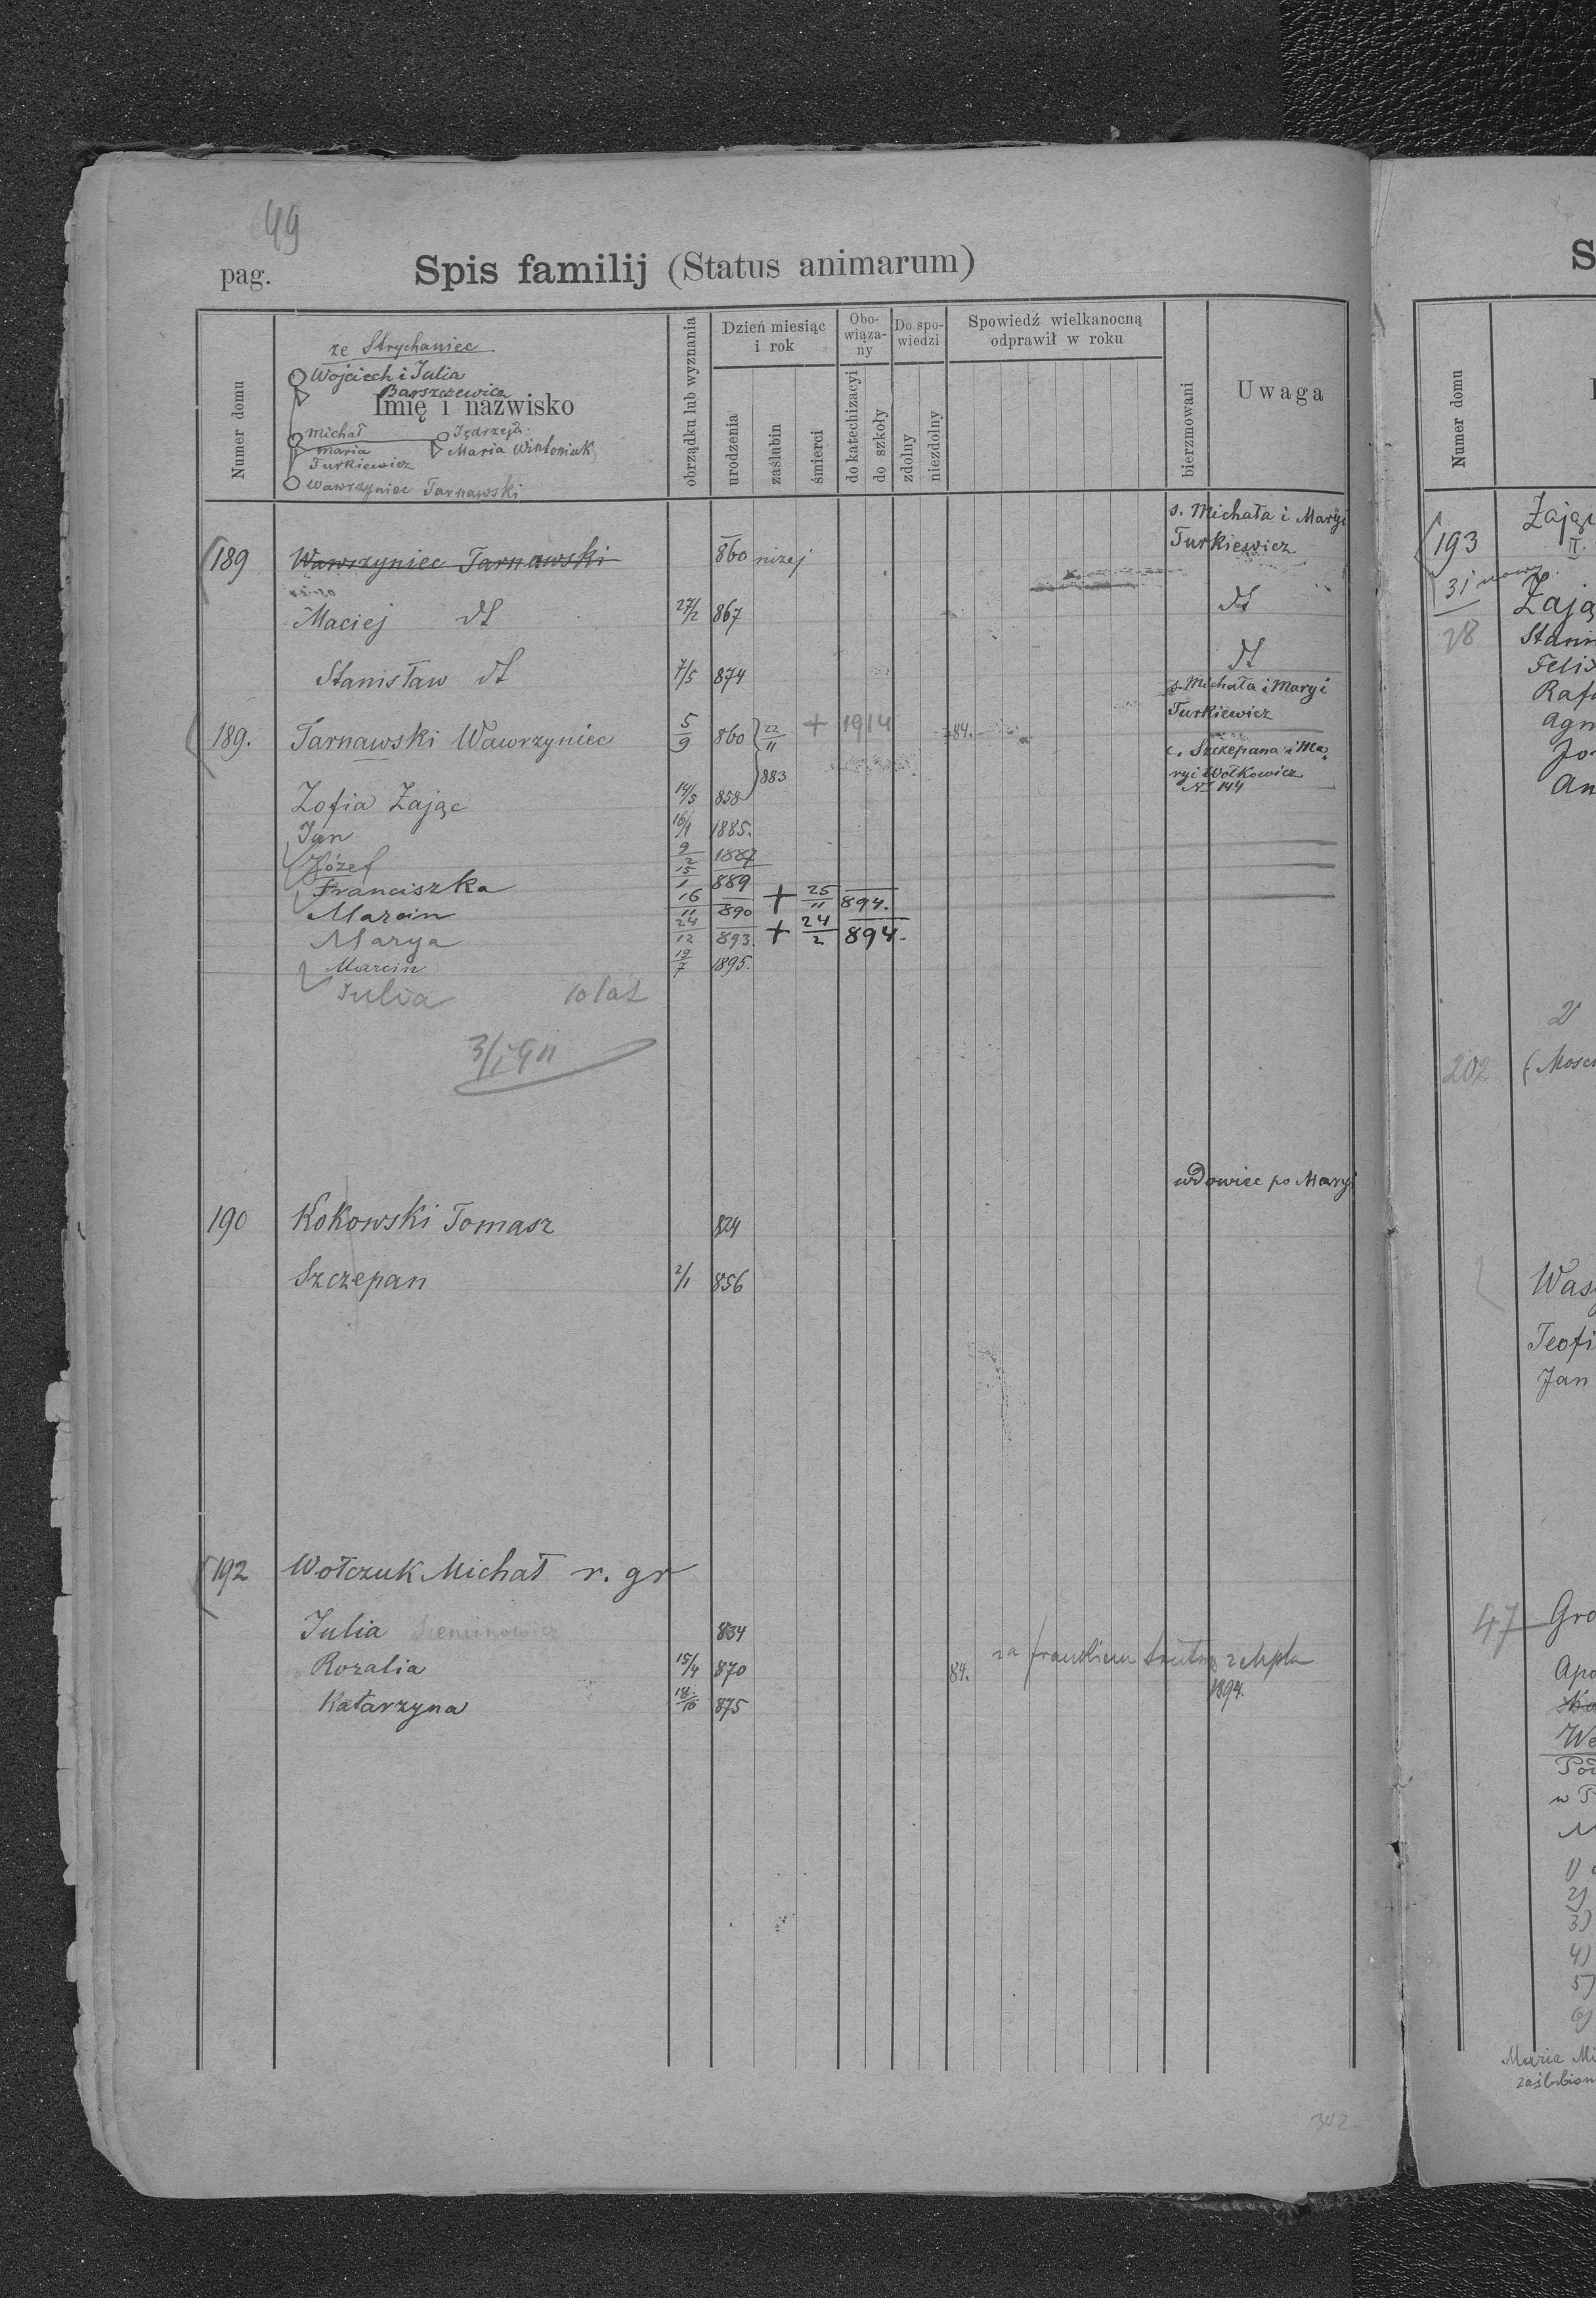 49
pag.
Spis familij (Status animarum)
Numer domu
ze Strychaniec
Wojciech i Julia
Barszczewicz
Imię i nazwisko
Michał
Maria
Turkiewicz
Jędrzej
Maria Wintoniuk
Wawrzyniec Tarnawski
obrządku lub wyznania
Dzień miesiąc
i rok
urodzenia
zaślubin
śmierci
Obo-
wiąza-
ny
do katechizacyi
do szkoły
Do spo-
wiedzi
zdolny
niezdolny
Spowiedź wielkanocną
odprawił w roku
bierzmowani
Uwaga
s. Michała i Maryi
Turkiewicz
189 Wawrzyniec Tarnawski 860 niżej
Maciej dt 27/2 867 dt
Stanisław dt 7/5 874 dt
s. Michała i Maryi
Turkiewicz
189. Tarnawski Wawrzyniec 5/9 860 22/11 883 + 1914 84.
c. Szczepana i Ma-
ryi Wołkowicz
N 144
Zofia Zając 14/5 858
Jan 16/1 1885.
Józef 9/2 1887
Franciszka 15/1 889
Marcin 16/11 890 + 25/11 894.
Marya 24/12 893. + 24/2 894.
Marcin 19/7 1895.
Julia 10 lat
3/I 911
wdowiec po Maryi
190 Kokowski Tomasz 824
Szczepan 2/1 856
192 Wołczuk Michał r. gr
Julia 834
Rozalia 15/4 870 84. za
1894.
Katarzyna 18/10 875
342
S
Numer domu
193 Zając
II.
31 nowy Zają
28 Stani
Felix
Rafa
Agn
Jo
An
2
202 (Mosc
Was
Teofi
Jan
47 Gro
Apo
We
w P
1)
2)
3)
4)
5)
6)
Maria Mi
zaślubion